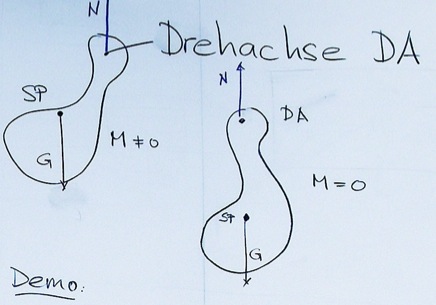 N
Drehachse DA
SP
G
M ≠ 0
N
DA
M = 0
SP
G
Demo: